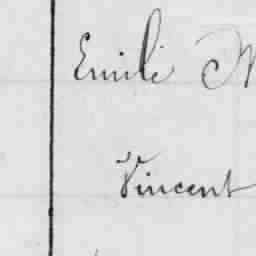 Emile
Vincent